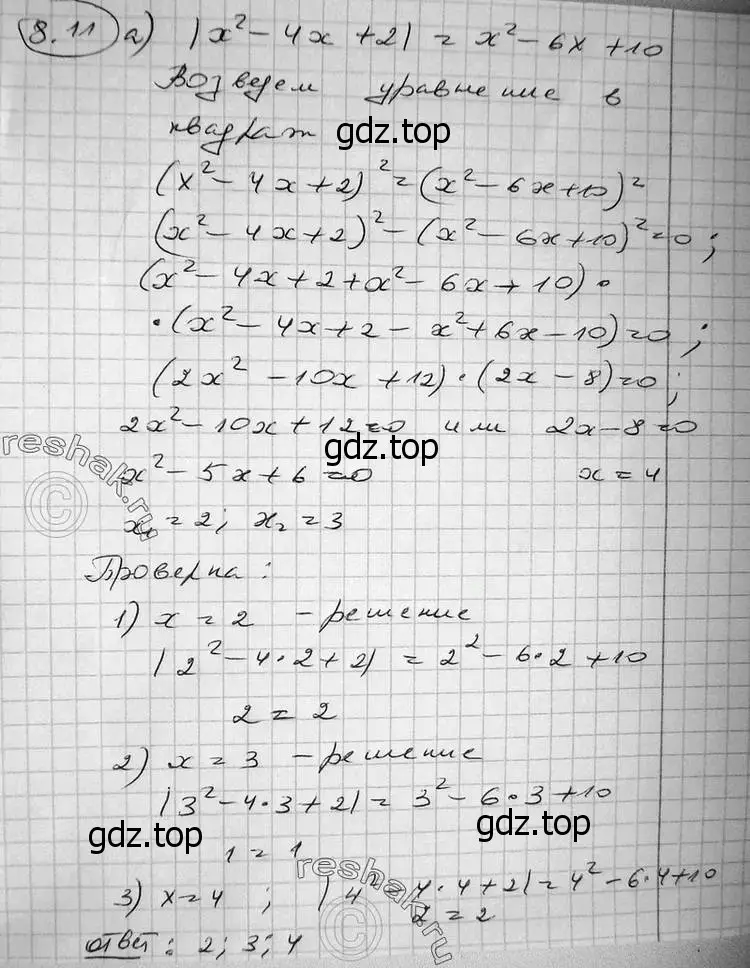 8.11 а) |x² - 4x + 2| = x² - 6x + 10
Возведем уравнение в
квадрат
gdz.top
(x² - 4x + 2)² = (x² - 6x + 10)²
(x² - 4x + 2)² - (x² - 6x + 10)² = 0;
(x² - 4x + 2 + x² - 6x + 10) ·
· (x² - 4x + 2 - x² + 6x - 10) = 0;
(2x² - 10x + 12) · (2x - 8) = 0;
2x² - 10x + 12 = 0 или 2x - 8 = 0
gdz.top
reshak.ru
x² - 5x + 6 = 0 x = 4
x₁ = 2; x₂ = 3
Проверка:
1) x = 2 - решение
|2² - 4·2 + 2| = 2² - 6·2 + 10
2 = 2
2) x = 3 - решение
|3² - 4·3 + 2| = 3² - 6·3 + 10
gdz.top
gdz.top
1 = 1
reshak.ru
3) x = 4; |4² - 4·4 + 2| = 4² - 6·4 + 10
2 = 2
ответ: 2; 3; 4